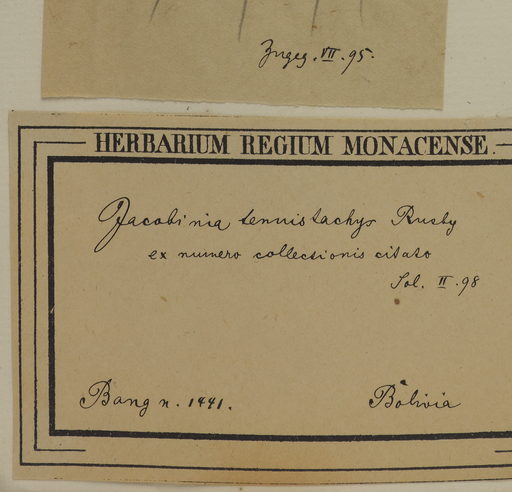 Zugeg. VII. 95.
HERBARIUM REGIUM MONACENSE.
Jacobinia tenuistachys Rusby
ex numero collectionis citato
Sol. II. 98
Bang n. 1441. Bolivia